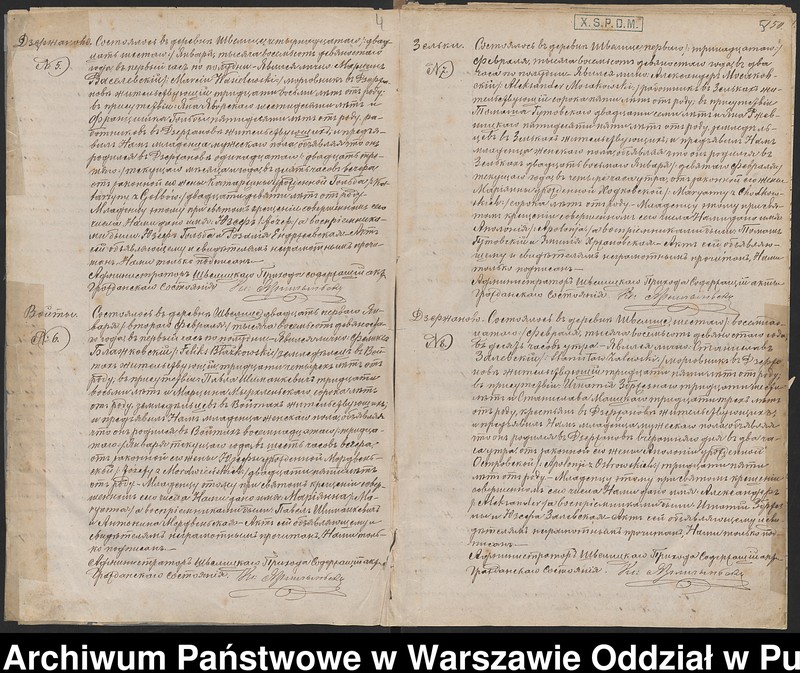 4
Дзержаново. Состоялось въ деревнѣ Швелице четырнадцатаго /: двад-
№ 5.
цать шестаго / Января, тысяча восемьсотъ девяностаго
года въ первый часъ по полудни. Явился лично Марцинъ
Васелевскій /: Marcin Wasielewski /
жительствующій тридцати восьми лѣтъ отъ роду,
въ присутствіи
пятидесяти лѣтъ отъ роду, ра-
ботниковъ въ Дзержановѣ жительствующихъ, и предъя-
вилъ Намъ младенца мужескаго пола, объявляя что онъ
родился въ Дзержановѣ одинадцатаго /: двадцать тре-
тяго / текущаго мѣсяца и года, въ девять часовъ вечера
отъ законной его жены Катаржины урожденной Голомбъ /: Ka-
двадцати девяти лѣтъ отъ роду.
Младенцу этому при святомъ крещеніи совершенномъ сего
числа Нами дано имя Юзефъ /: Józef, а воспріемника-
ми были Юзефъ и Розалія Ендржеевская. Актъ
сей объявляющему и свидѣтелямъ неграмотнымъ прочи-
танъ, Нами только подписанъ.
Администраторъ Швелицкаго Прихода Содержащій акты
Гражданскаго Состоянія Кс.
Войты
№ 6.
Состоялось въ деревнѣ Швелице двадцать перваго Ян-
варя /: втораго Февраля /, тысяча восемьсотъ девяноста-
го года въ первый часъ по полудни. Явился лично Феликсъ
Блашковскій /: Feliks Błaszkowski / земледѣлецъ въ Вой-
тахъ жительствующій тридцати четырехъ лѣтъ отъ
роду, въ присутствіи Павла Шиманкевича тридцати
восьми лѣтъ и Марцина сорока лѣтъ
отъ роду, земледѣльцевъ въ Войтахъ жительствующихъ,
и предъявилъ Намъ младенца женскаго пола, объявляя
что онъ родился въ Войтахъ восемнадцатаго /: тридца-
таго / Января текущаго года, въ шесть часовъ вечера,
отъ законной его жены Юзефы урожденной Мордвин-
ской двадцати пяти лѣтъ
отъ роду. Младенцу этому при святомъ крещеніи совер-
шенномъ сего числа Нами дано имя Маріанна /: Ma-
ryanna / а воспріемниками были Павелъ Шиманкевичъ
и Антонина Мордвинская. Актъ сей объявляющему и
свидѣтелямъ неграмотнымъ прочитанъ, Нами толь-
ко подписанъ.
Администраторъ Швелицкаго Прихода Содержащій акты
Гражданскаго Состоянія. Кс.
X.S.P.D.M.
Зельки.
№ 7.
Состоялось въ деревнѣ Швелице, перваго /: тринадцатаго /
Февраля, тысяча восемьсотъ девяностаго года, въ два
часа по полудни. Явился лично Александръ Мосаков-
скій /: Aleksander Mosakowski / работникъ въ Зелькахъ жи-
тельствующій сорока пяти лѣтъ отъ роду, въ присутствіи
Томаша Гутовскаго двадцати семи лѣтъ и
пятидесяти пяти лѣтъ отъ роду, земледѣль-
цевъ въ Зелькахъ жительствующихъ, и предъявилъ Намъ
младенца женскаго пола, объявляя что онъ родился въ
Зелькахъ двадцать восьмаго Января /: девятаго Февраля /
текущаго года, въ четыре часа утра, отъ законной его жены
Маріанны урожденной Ходковской /: Maryanny z Chodkow-
skich / сорока лѣтъ отъ роду. Младенцу этому при свя-
томъ крещеніи совершенномъ сего числа Нами дано имя
Аполонія /: Apolonja / а воспріемниками были Томашъ
Гутовскій и Эмилія Актъ сей объявляю-
щему и свидѣтелямъ неграмотнымъ прочитанъ, Нами
только подписанъ.
Администраторъ Швелицкаго Прихода Содержащій акты
Гражданскаго Состоянія Кс.
Дзержаново.
№ 8.
Состоялось въ деревнѣ Швелице, шестаго /: восемнад-
цатаго / Февраля, тысяча восемьсотъ девяностаго года,
въ десять часовъ утра. Явился лично Станиславъ
Залевскій /: Stanisław Zalewski / въ Дзержа-
новѣ жительствующій тридцати пяти лѣтъ отъ роду,
въ присутствіи Игнатія тридцати шести
лѣтъ и Станислава тридцати трехъ лѣтъ
отъ роду, крестьянъ въ Дзержановѣ жительствующихъ,
и предъявилъ Намъ младенца мужескаго пола, объявляя
что онъ родился въ Дзержановѣ вчерашняго дня въ два ча-
са утра, отъ законной его жены Аполоніи урожденной
Островской /: Apolonji z Ostrowskich / тридцати пяти
лѣтъ отъ роду. Младенцу этому при святомъ крещеніи
совершенномъ сего числа Нами дано имя Александръ
/: Aleksander / а воспріемниками были Игнатій
и Юзефа Залевская. Актъ сей объявляющему и сви-
дѣтелямъ неграмотнымъ прочитанъ, Нами только под-
писанъ.
Администраторъ Швелицкаго Прихода Содержащій акты
Гражданскаго Состоянія. Кс.
Archiwum Państwowe w Warszawie Oddział w Pu